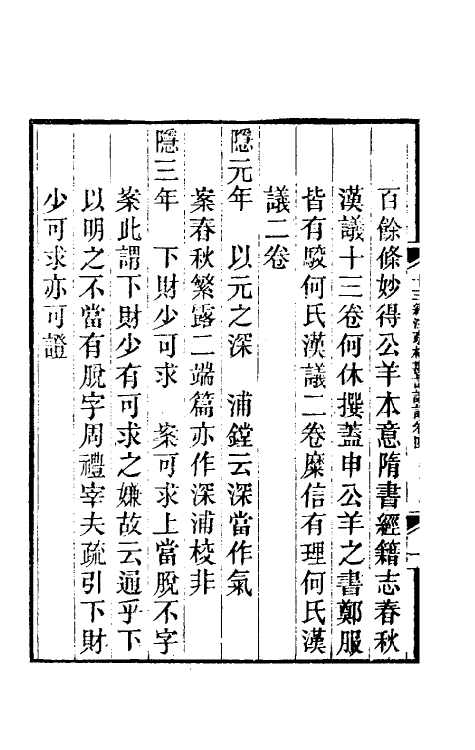 百餘條妙得公羊本意隋書經籍志春秋
漢議十三卷何休撰蓋申公羊之書鄭服
皆有駮何氏漢議二卷糜信有理何氏漢
議二卷
隱元年　以元之深　浦鏜云深當作氣
案春秋繁露二端篇亦作深浦校非
隱三年　下財少可求　案可求上當脫不字
案此謂下財少有可求之嫌故云通乎下
以明之不當有脫字周禮宰夫疏引下財
少可求亦可證